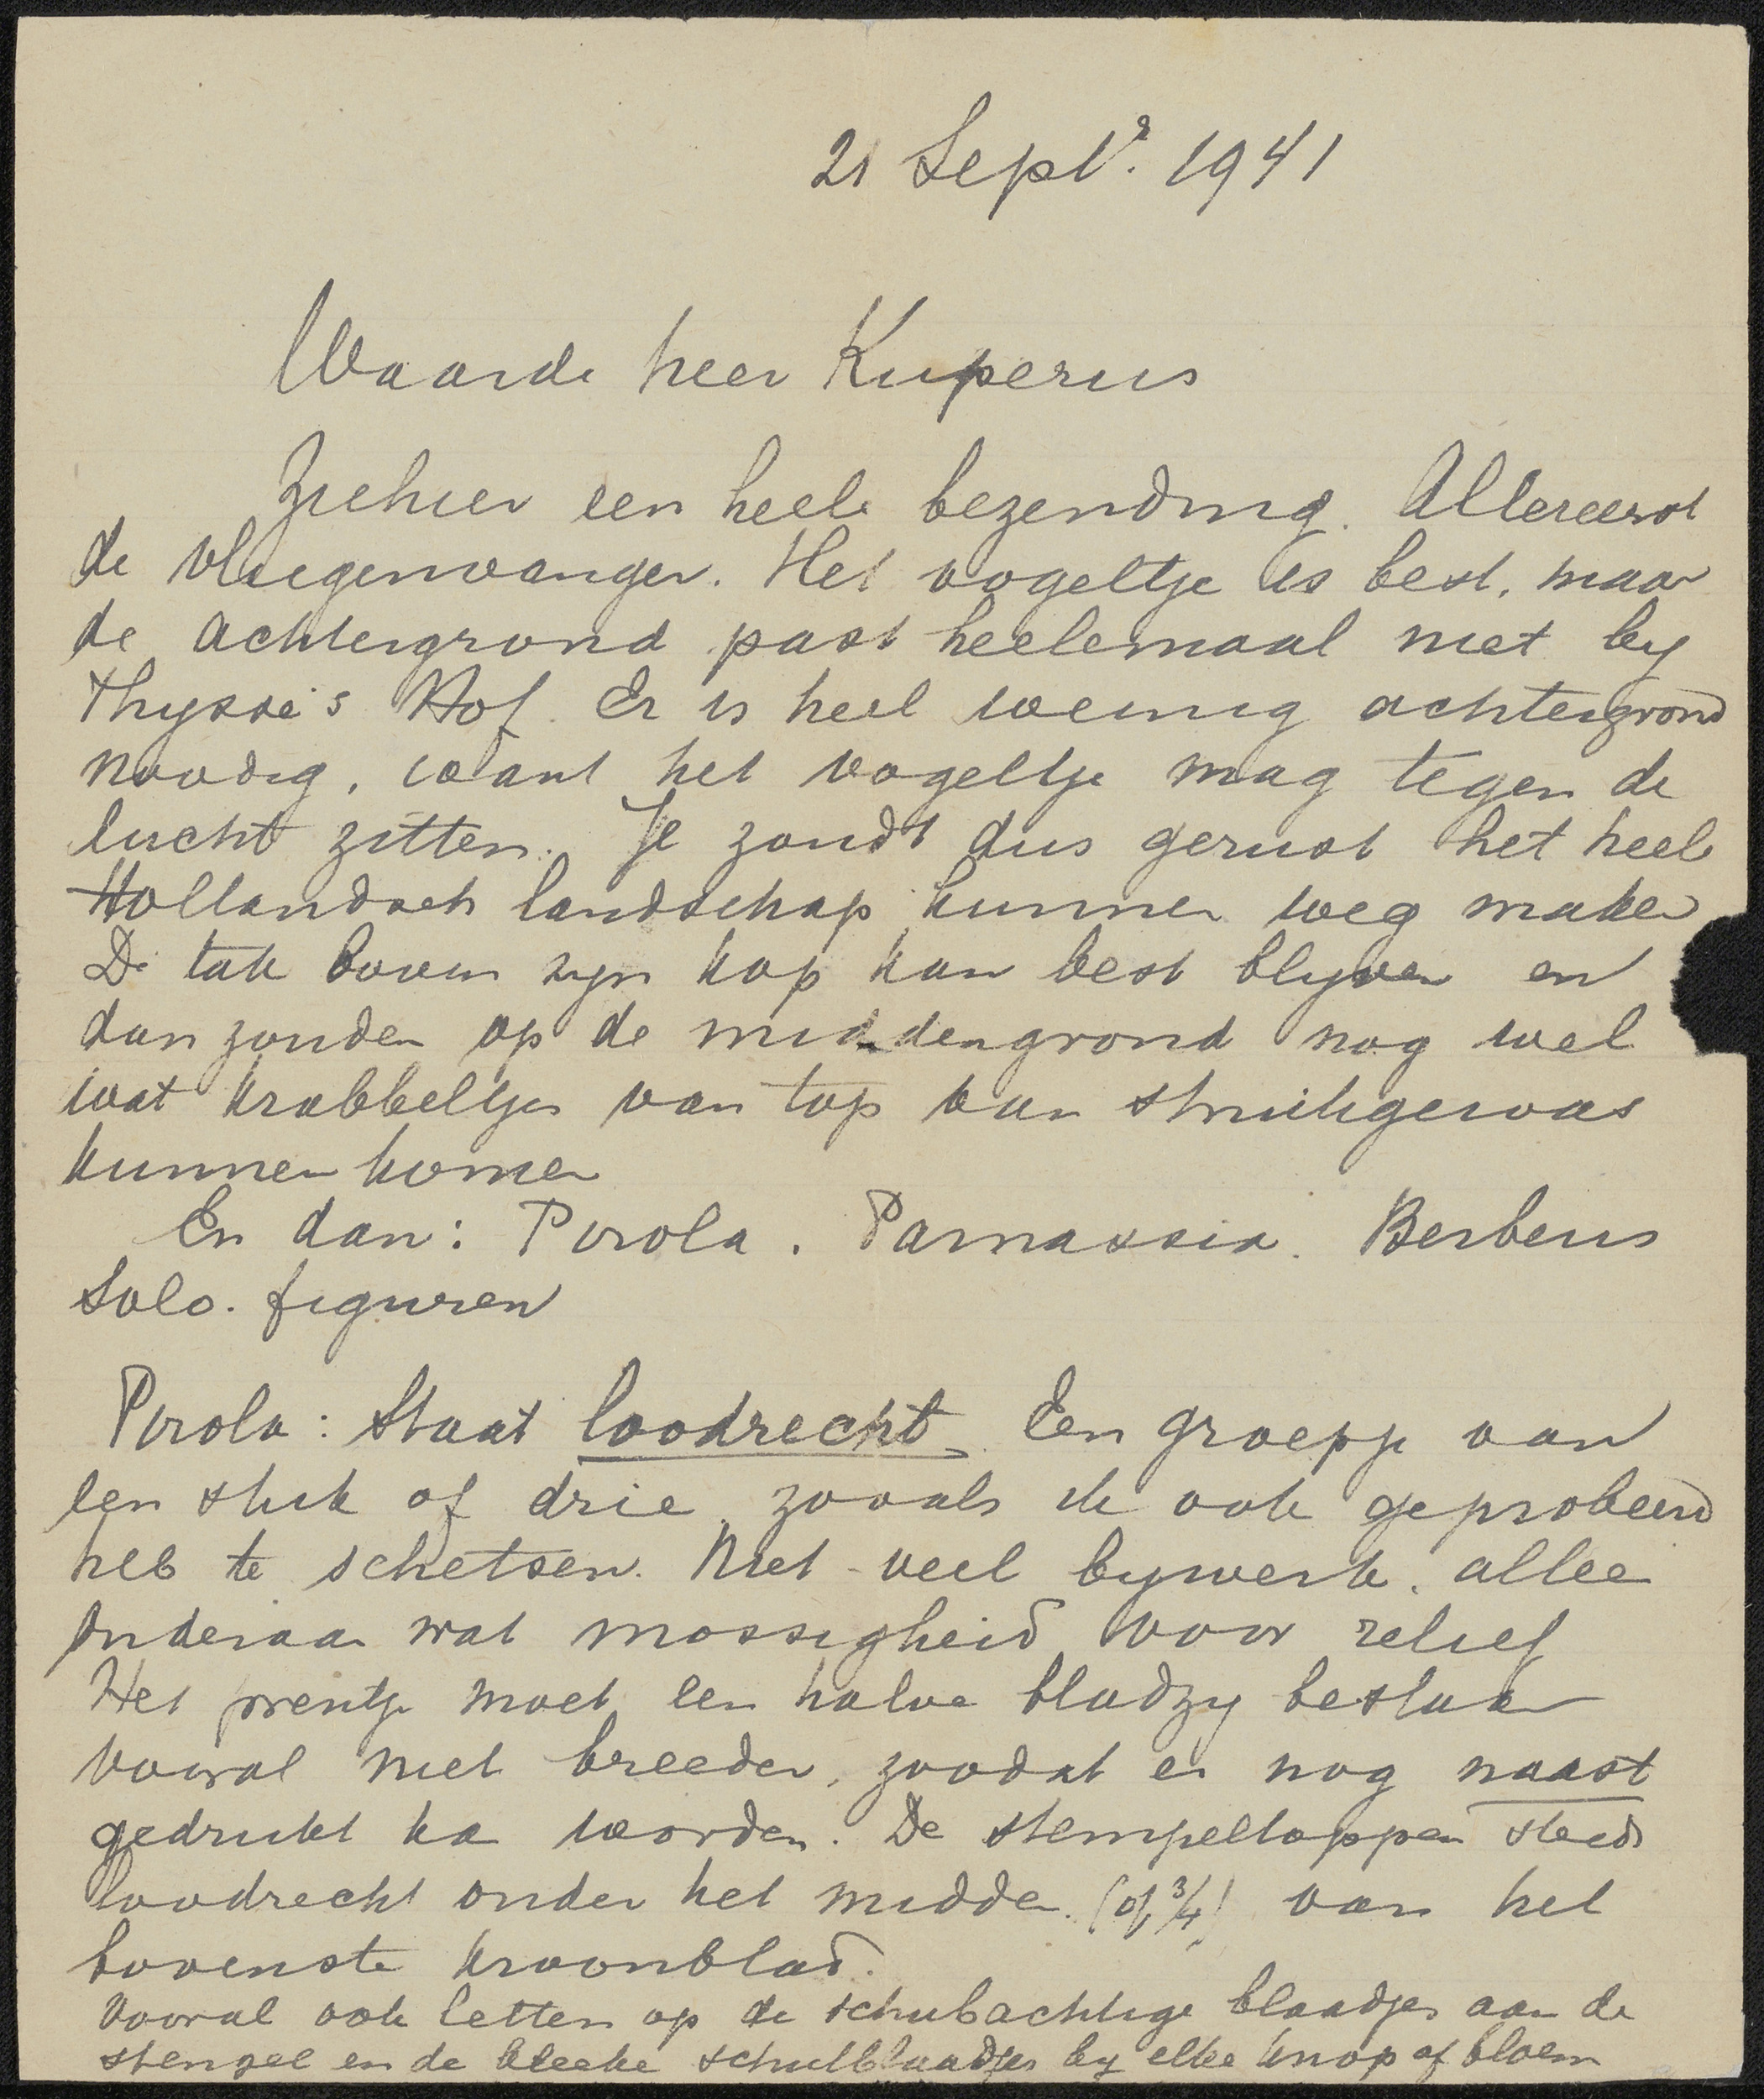 21 Septr. 1941
Waarde heer Kuperus
Ziehier een heele bezending. Allereerst
de vliegenvanger. Het vogeltje is best, maar
de achtergrond past heelemaal niet by
Thysse's Hof. Er is heel weinig achtergrond
noodig, want het vogeltje mag tegen de
lucht zitten. Je zoudt dus gerust het heele
Hollandsch landschap kunnen weg maken
De tak boven zyn kop kan best blyven en
dan zouden op de middengrond nog wel
wat krabbeltjes van top van struikgewas
kunnen komen
En dan: Pirola. Parnassia. Berberis
Solo. figuren
Pirola: Staat loodrecht. Een groepje van
een stuk of drie, zooals ik ook geprobeerd
heb te schetsen. Niet veel bywerk, alleen
onderaan wat mossigheid voor relief
Het prentje moet een halve bladzy beslaan
vooral niet breeder, zoodat er nog naast
gedrukt kan worden. De stempeltoppen steeds
loodrecht onder het midden (of 3/4) van het
bovenste kroonblad.
Vooral ook letten op de schubachtige blaadjes aan de
stengel en de bleeke schutblaadjes by elke knop of bloem